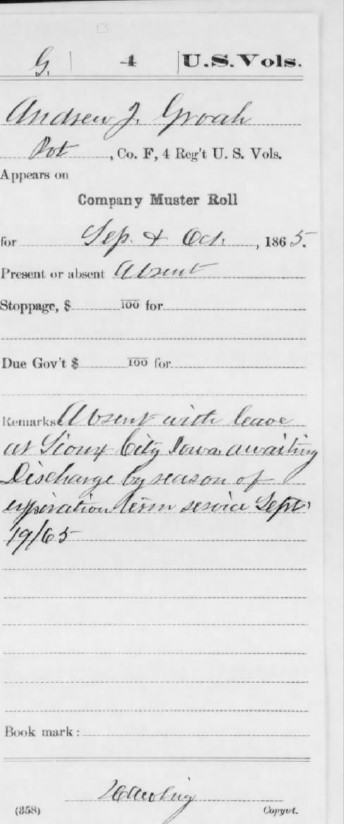 G. | 4 | U.S. Vols.
Andrew J. Groah
Pvt , Co. F, 4 Reg't U. S. Vols.
Appears on
Company Muster Roll
for Sep. & Oct. , 1865.
Present or absent Absent
Stoppage, $ 100 for
Due Gov't $ 100 for
Remarks: Absent with leave
at Sioux City Iowa awaiting
Discharge by reason of
expiration term service Sept
19/65
Book mark:
(358) Copyist.